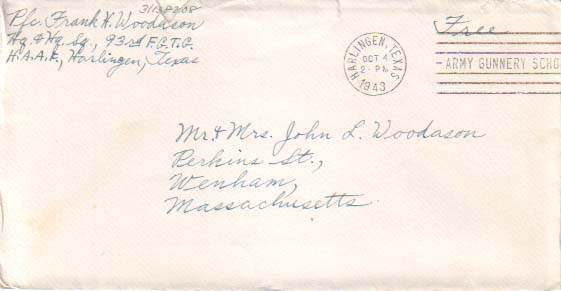 31138308
Pfc. Frank H. Woodason
Hq. & Hq. Sq., 93rd F.G.T.G.
H.A.A.F., Harlingen, Texas
Free
HARLINGEN, TEXAS
OCT 4
2 - PM
1943
ARMY GUNNERY SCHO
Mr. & Mrs. John L. Woodason
Perkins St.,
Wenham,
Massachusetts